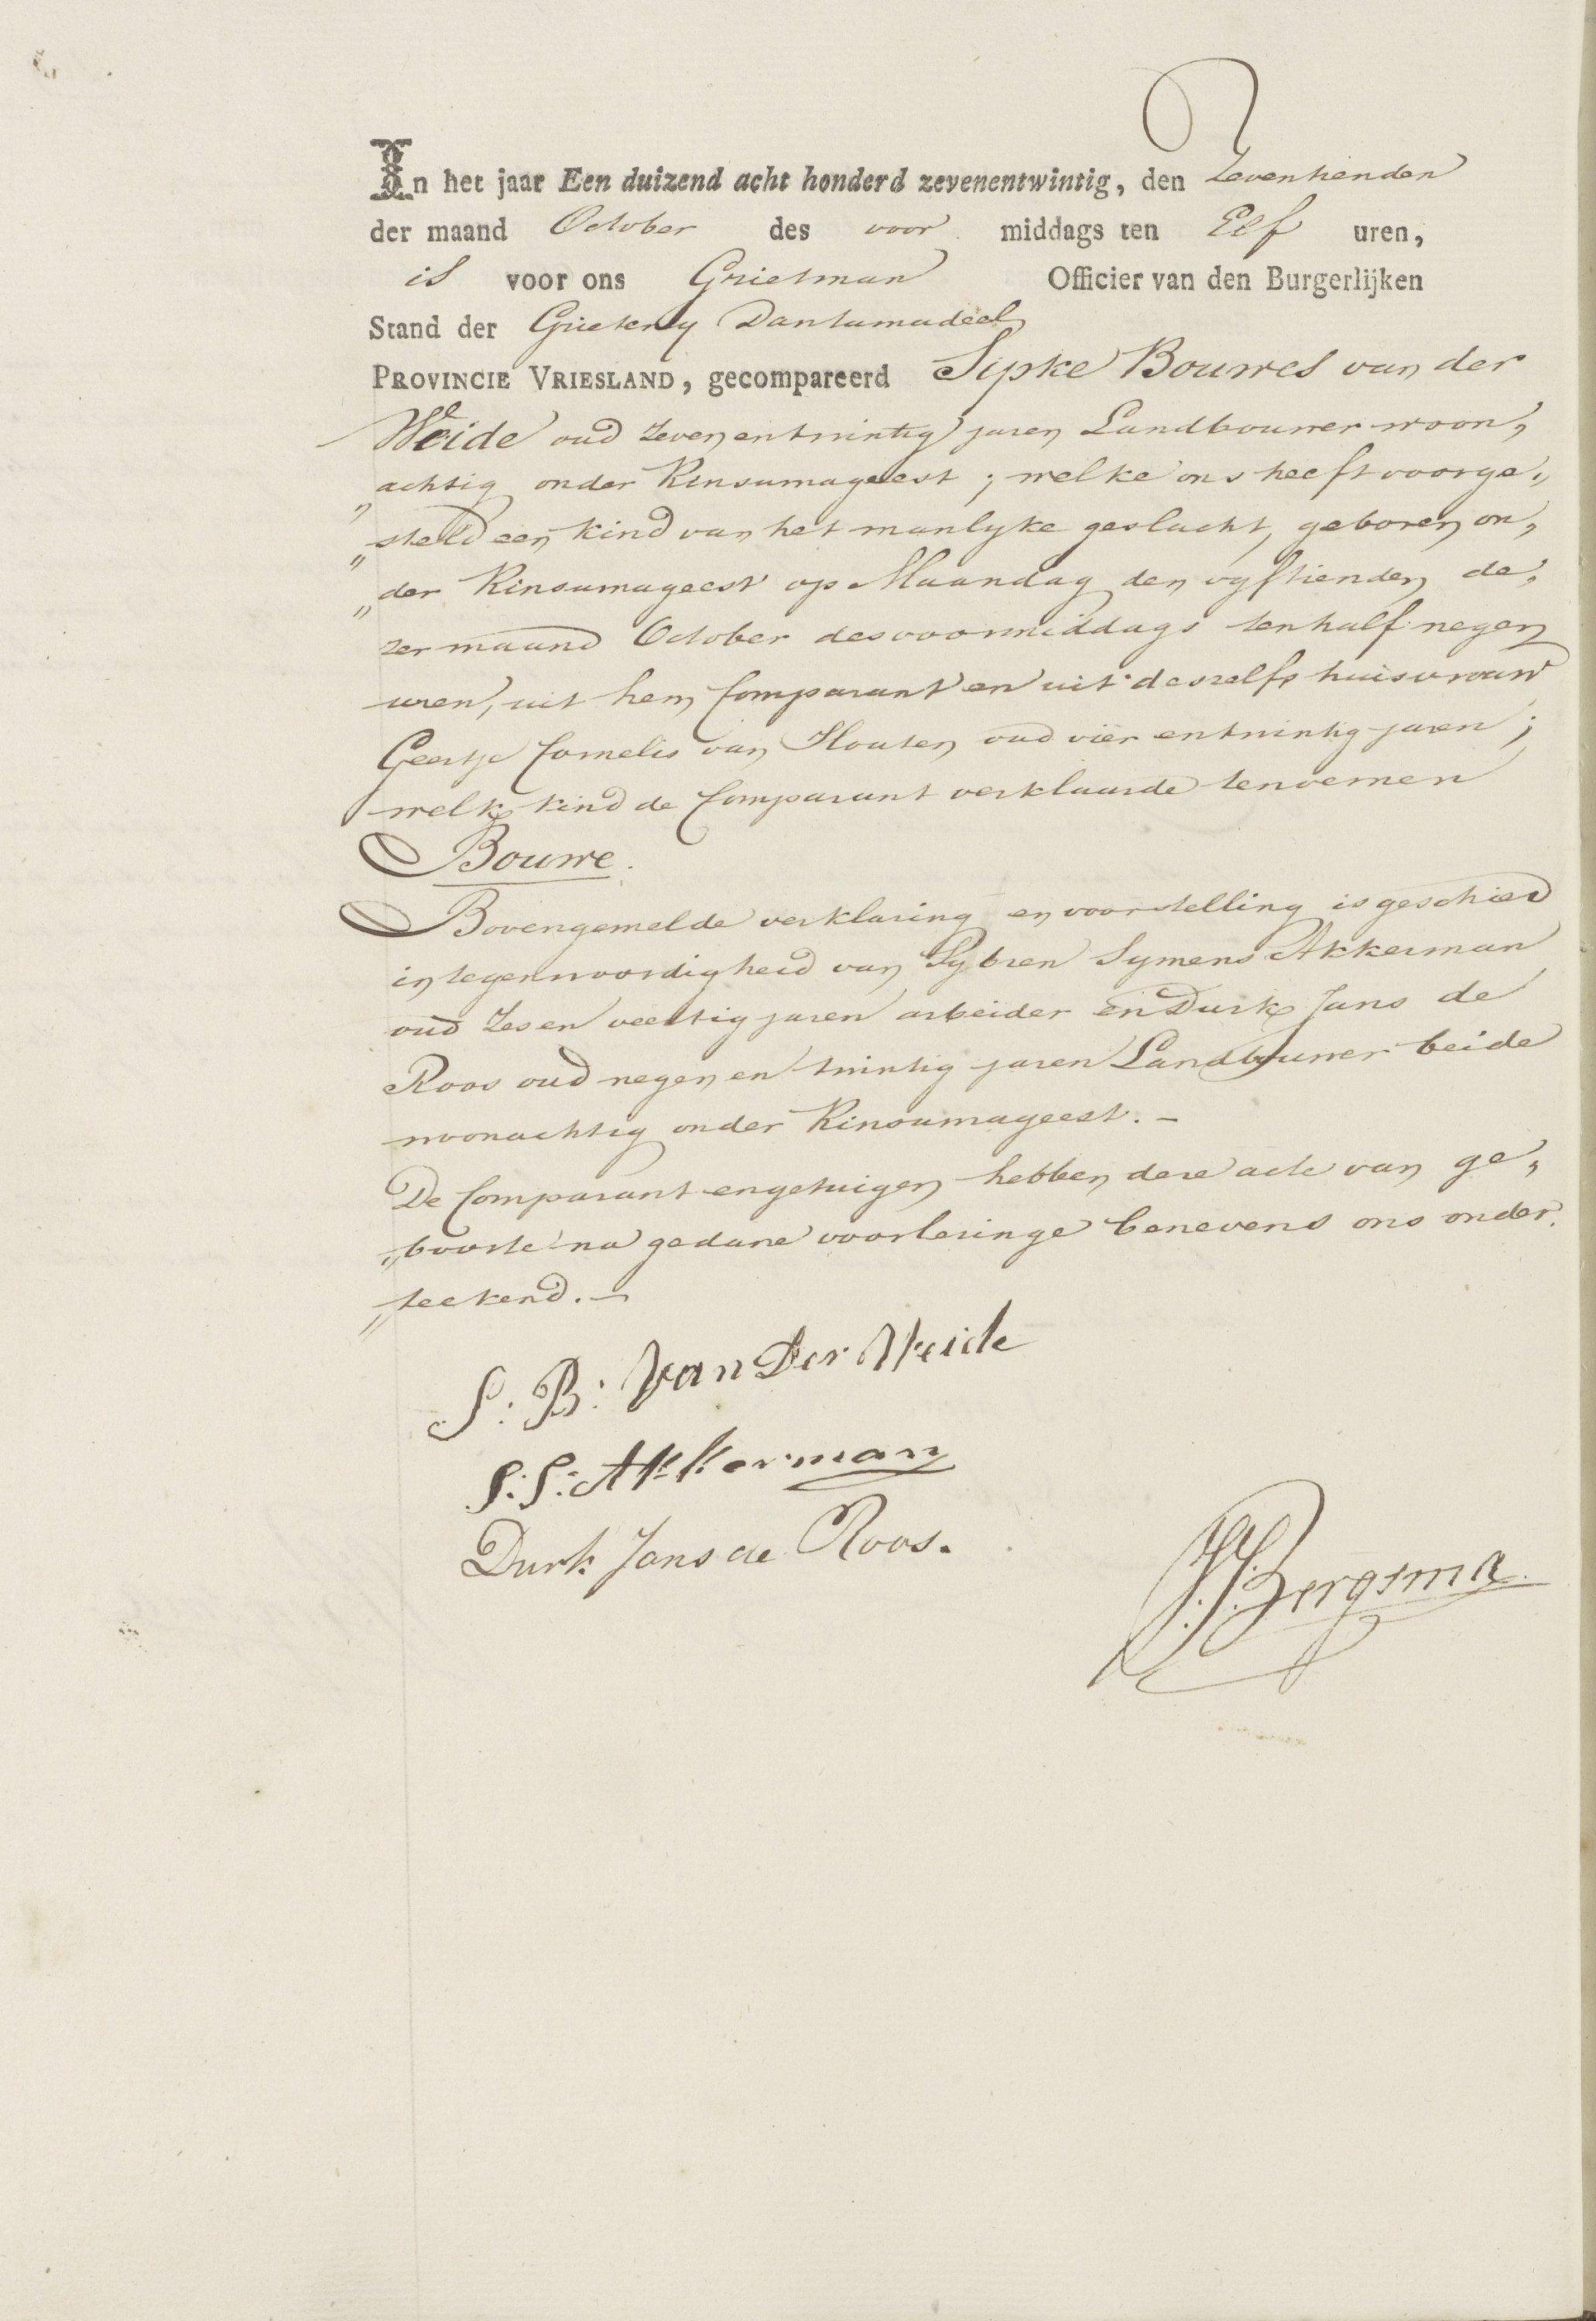 In het jaar Een duizend acht honderd zevenentwintig, den Zeventienden
der maand October des voor middags ten Elf uren,
is voor ons Grietman Officier van den Burgerlijken
Stand der Grieteny Dantumadeel
PROVINCIE VRIESLAND, gecompareerd Sipke Bouwes van der
Weide oud zevenentwintig jaren Landbouwer woon„
„achtig onder Rinsumageest; welke ons heeft voorge„
„steld een kind van het manlyke geslacht, geboren on„
„der Rinsumageest op Maandag den vyftienden de„
zer maand October des voormiddags ten half negen
uren, uit hem Comparant en uit deszelfs huisvrouw
Geertje Cornelis van Houten oud vier entwintig jaren;
welk kind de Comparant verklaarde te noemen
Bouwe.
Bovengemelde verklaring en voorstelling is geschied
in tegenwoordigheid van Sybren Symens Akkerman
oud Zes en veertig jaren arbeider en Durk Jans de
Roos oud negen en twintig jaren Landbouwer beide
woonachtig onder Rinsumageest. –
De Comparant en getuigen hebben deze acte van ge„
„boorte na gedane voorlezinge benevens ons onder„
„teekend. –
S: B: Van Der Weide
S: S: Akkerman
Durk Jans de Roos.
Bergsma